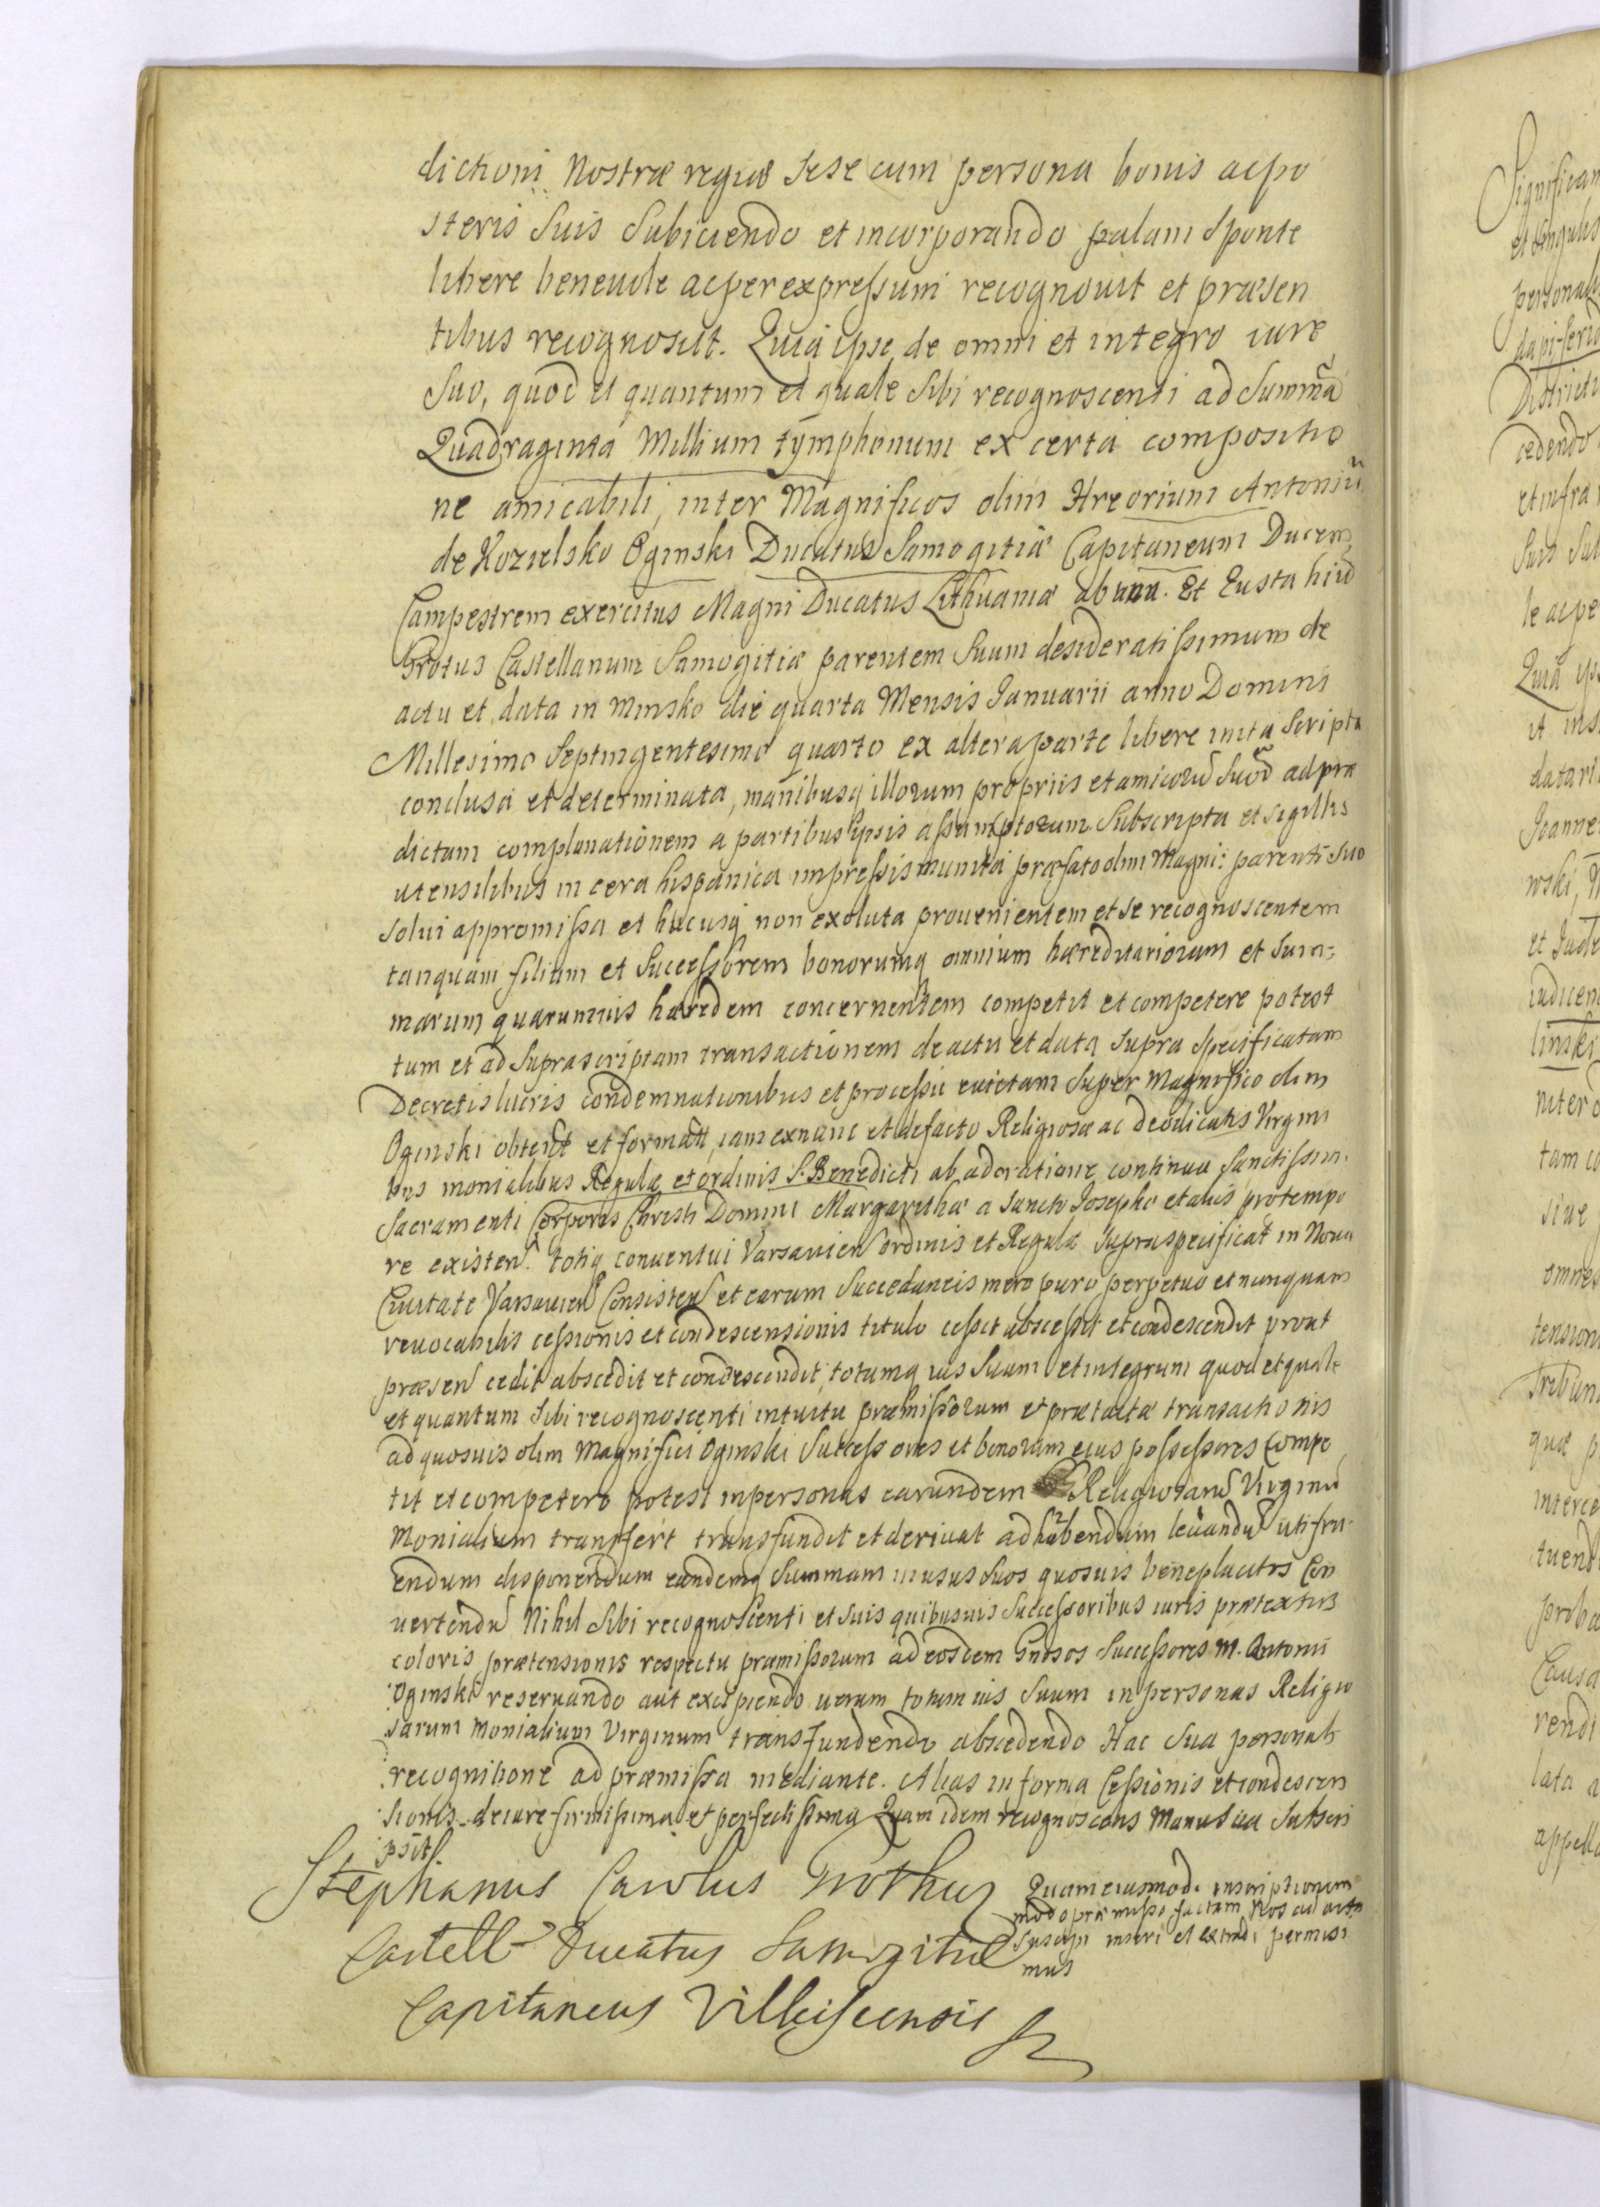 dictioni Nostræ regiæ sese cum persona bonis ac po
steris suis subiiciendo et incorporando palam sponte
libere beneuole ac per expressum recognouit et præsen
tibus recognoscit. Quia ipse de omni et integro iure
suo, quod et quantum et quale sibi recognoscenti ad Summã
Quadraginta Millium tymphonum ex certa compositio
ne amicabili, inter Magnificos olim Hreorium Antoniũ
de Kozielsko Oginski Ducatus Samogitiæ Capitaneum Ducem
Campestrem exercitus Magni Ducatus Lithuaniæ ab una. Et Eustahiũ
Grotus Castellanum Samogitiæ parentem suum desideratissimum de
actu et data in Minsko die quarta Mensis Ianuarii anno Domini
Millesimo Septingentesimo quarto ex altera parte libere inita scripta
conclusa et determinata, manibusq illorum propriis et amicorũ suorũ ad præ
dictam complanationem a partibus ipsis assumptorum subscripta et sigillis
utensilibus in cera hispanica impressis munita præfato olim Magni: parenti suo
solui appromissa et hucusq non exoluta prouenientem et se recognoscentem
tanquam filium et Successorem bonorumq omnium hæreditariorum et Sum=
marum quarumuis hæredem concernentem competit et competere potest
tum et ad suprascriptam transactionem de actu et data supra specificatam
Decretis lucris condemnationibus et processu euictam super Magnifico olim
Oginski obtent et format, iam ex nunc et de facto Religiosæ ac deo dicatis Virgini
bus monialibus Regulæ et ordinis S. Benedicti ab adoratione continua Sanctissimi
Sacramenti Corporis Christi Domini Margarithæ a Sancto Josepho et aliis pro tempo
re existen totiq conuentui Varsauien ordinis et Regulæ supraspecificat in Noua
Ciuitate Varsauien Consisten et earum Succedaneis mero puro perpetuo et nunquam
reuocabilis cessionis et condescensionis titulo cessit abscessit et condescendit prout
præsen cedit abscedit et condescendit, totumq ius suum et integrum quod et quale
et quantum sibi recognoscenti intuitu præmissorum et prætactæ transactionis
ad quosuis olim Magnifici Oginski Successores et bonorum eius possessores Compe
tit et competere potest in personas earundem Religiosarũ Virginũ
Monialium transfert transfundit et deriuat ad habendum leuandũ uti fru=
endum disponendum eandemq summam in usus suos quosuis beneplacitos Con
uertendũ Nihil sibi recognoscenti et suis quibusuis Successoribus iuris prætextus
coloris prætensionis respectu præmissorum ad eosdem Gnosos Successores M. Antonii
Oginski reseruando aut excipiendo uerum totum ius suum in personas Religio
sarum Monialium Virginum transfundendo abscedendo Hac sua personali
recognitione ad præmissa mediante. Alias in forma Cessionis et condescen
sionis de iure firmissima et perfectissima Quam idem recognoscens Manu sua subscri
psit.
Stephanus Carolus Grothus
Castell Ducatus Samogitiæ
Capitaneus Villiscensis
Quam eiusmodi inscriptionem
modo præmisso factam Nos ad acta
suscipi inseri et extradi permisi
mus